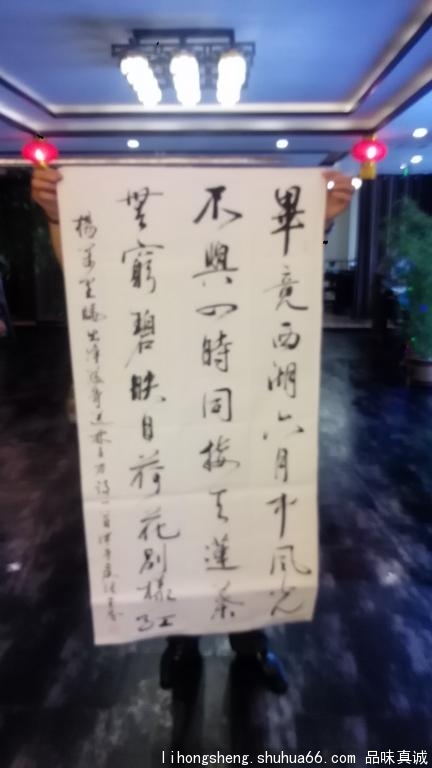 畢竟西湖六月中風光
不與四時同接天蓮葉
無窮碧映日荷花別樣紅
楊萬里曉出淨慈寺送林子方詩一首
lihongsheng.shuhua66.com 品味真诚